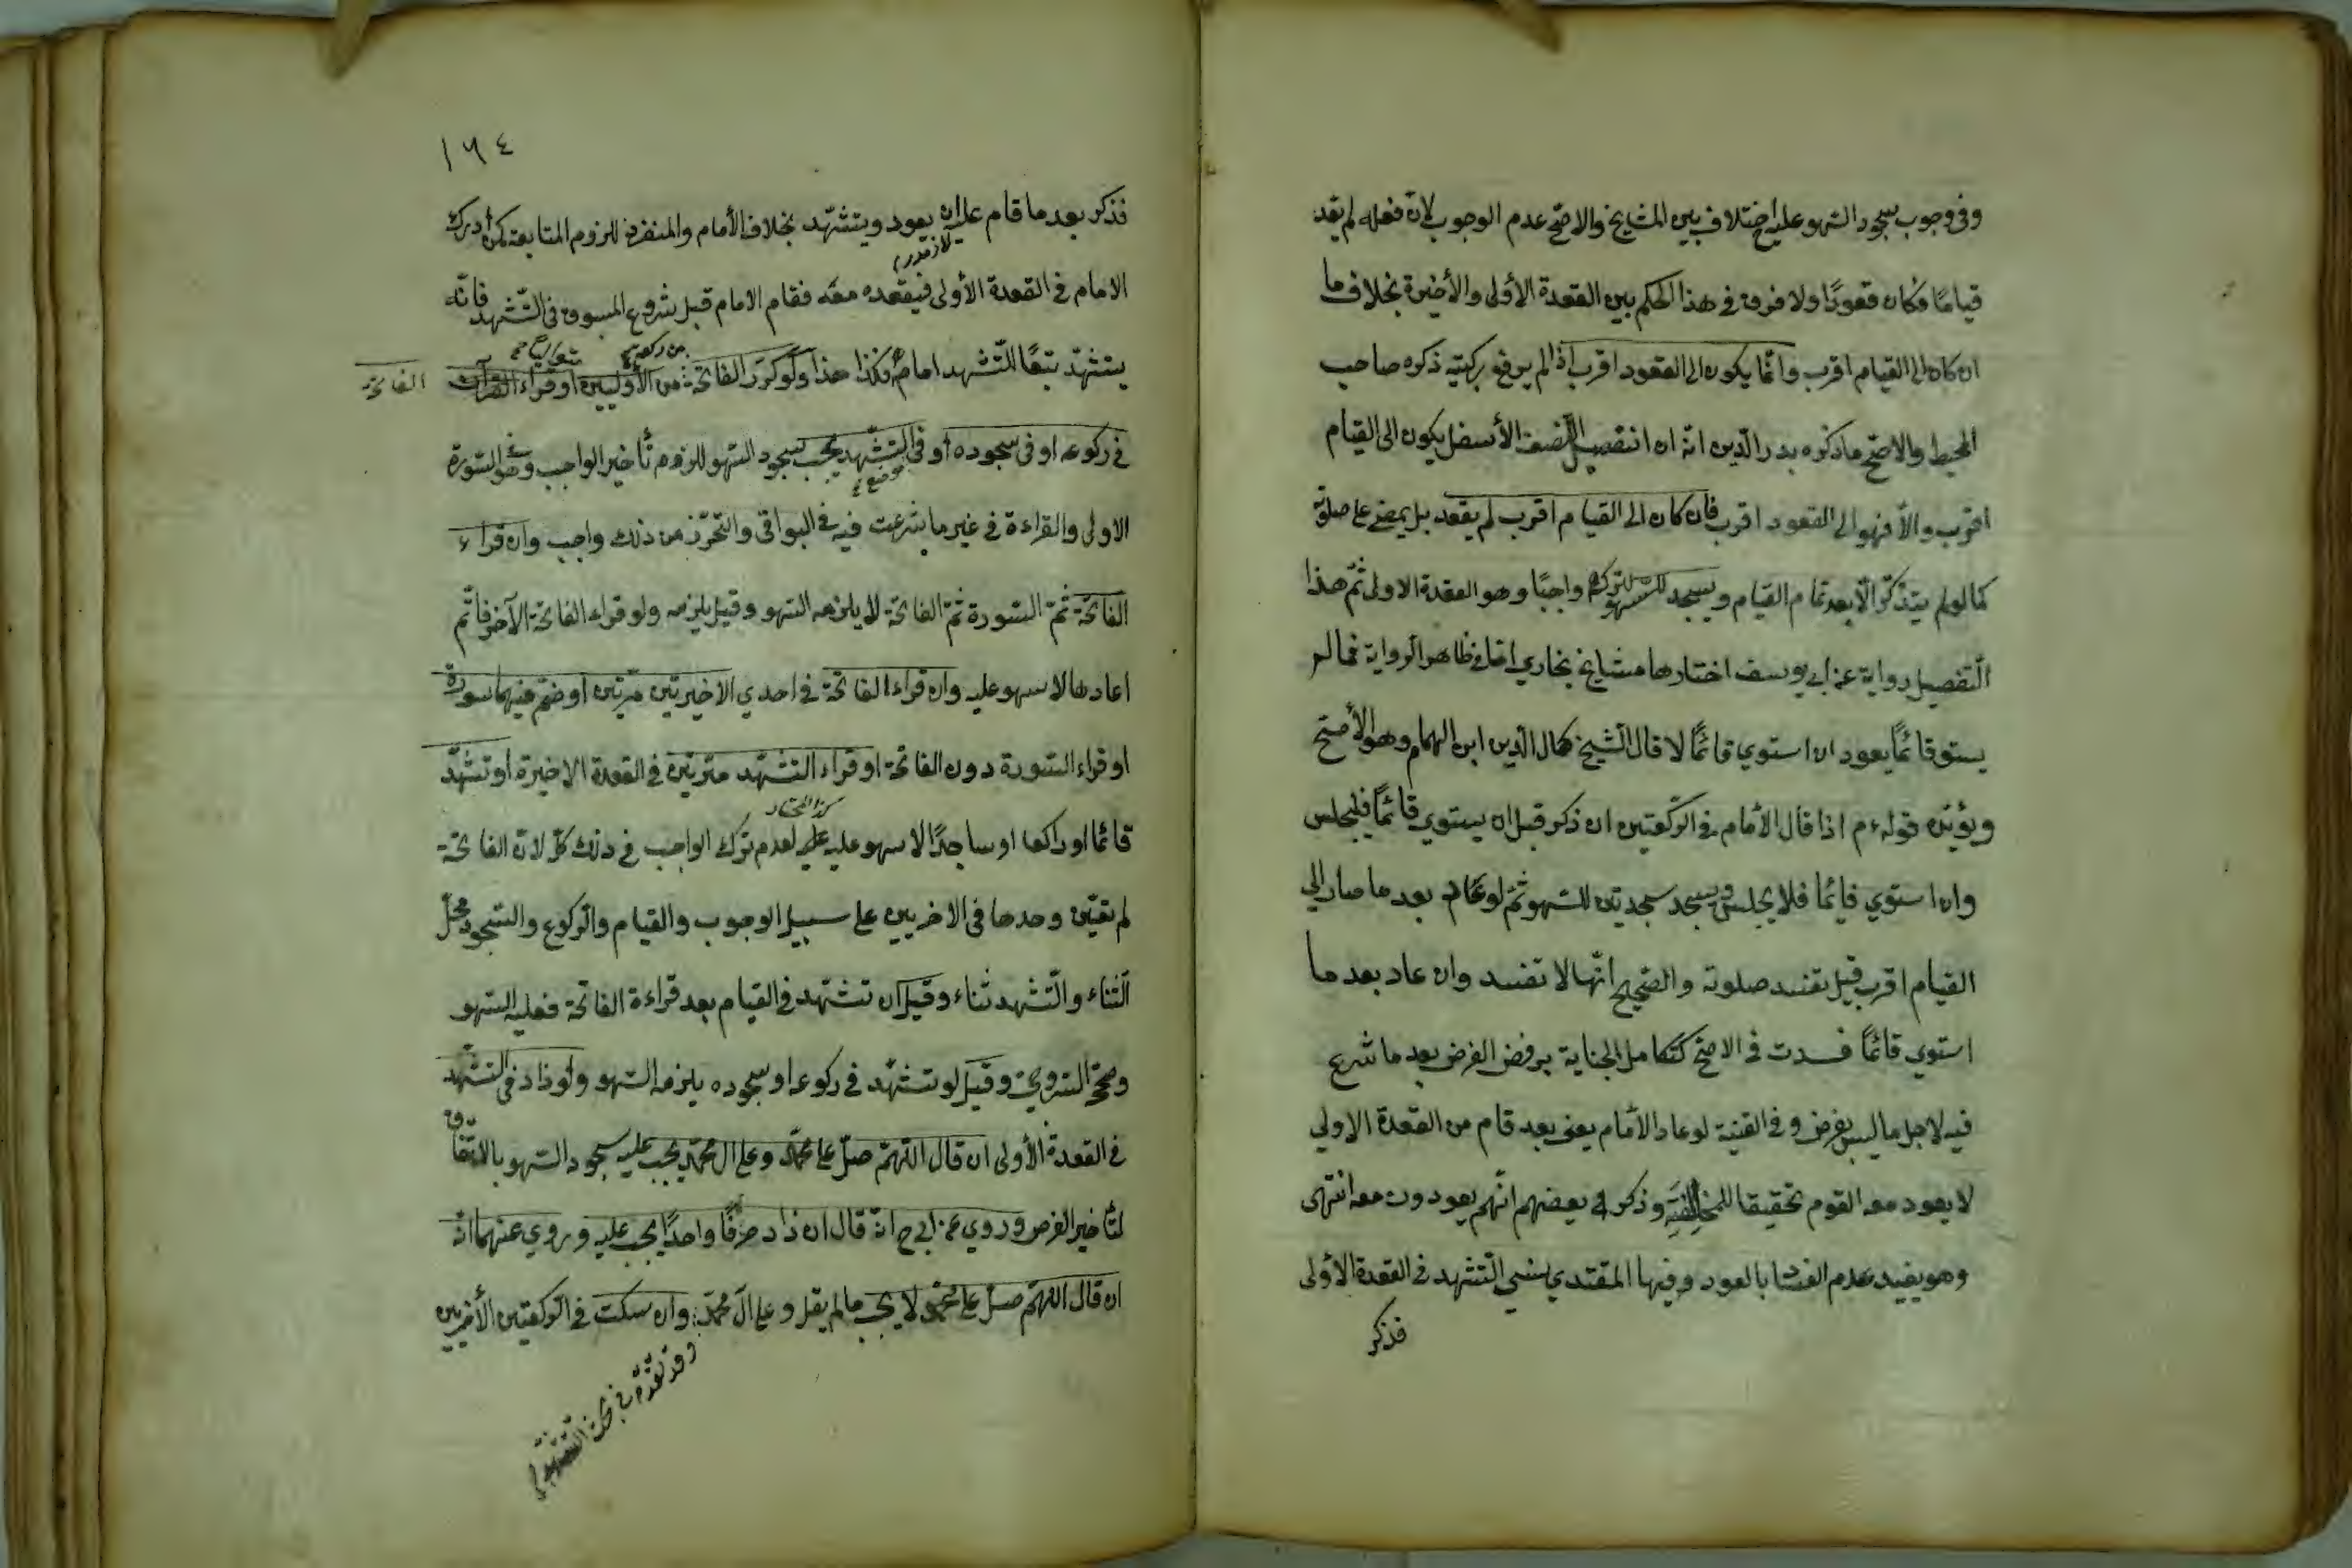 وفى وجوب سجود السهو عليه اختلاف بين المشايخ والاصح عدم الوجوب لان فعله لم يعد
قيامًا فكان قعودًا ولا فرق فى هذا الحكم بين القعدة الأولى والأخيرة بخلاف ما
ان كان الى القيام اقرب وانّما يكون الى القعود اقرب اذا لم يرفع ركبتيه ذكره صاحب
المحيط والاصح ما ذكره بدر الدّين انّه ان انتصب النّصف الأسفل يكون الى القيام
اقرب والّا فهو الى القعود اقرب فان كان الى القيام اقرب لم يقعد بل يمضى على صلوته
كما لو لم يتذكّر الّا بعد تمام القيام ويسجد للسهو لتركه واجبًا وهو القعدة الاولى ثمّ هذا
التّفصيل رواية عن ابى يوسف اختارها مشايخ بخاري امّا فى ظاهر الرواية فما لم
يستو قائمًا يعود ان استوي قائمًا لا قال الشّيخ كمال الدّين ابن الهمام وهو الأصح
ويؤيّده قوله ءم اذا قال الأمام فى الرّكعتين ان ذكر قبل ان يستوي قائمًا فليجلس
وان استوي قائما فلا يجلس ويسجد سجدتين للسهو ثمّ لو عاد بعد ما صار الى
القيام اقرب قيل تفسد صلوته والصّحيح انّها لا تفسد وان عاد بعد ما
استوي قائمًا فسدت فى الاصح كتكامل الجناية برفض الفرض بعد ما شرع
فيه لاجل ما ليس بفرض وفى القنية لو عاد الأمام يعنى بعد قام من القعدة الاولي
لا يعود معه القوم تحقيقا للمخالفة وذكر بعضهم انّهم يعودون معه انتهى
وهو يفيد عدم الفساد بالعود وفيها المقتدي نسى التشهد فى القعدة الأولى
فذكر
١٦٤
فذكر بعد ما قام عليه ان يعود ويتشهّد بخلاف الأمام والمنفرد للزوم المتابعة كمن أدرك
الامام فى القعدة الأولى فيقعده معه فقام الامام قبل شروع المسبوق فى التّشهد فانّه
يتشهّد تبعًا للتّشهد امامه فكذا هذا ولو كرّر الفاتحة من الأوليين او قراء القرآن
الفاتحة
فى ركوعه او فى سجوده أو فى التشّهد يجب سجود السهو للزوم تأخير الواجب وهو السّورة
الاولى والقراءة فى غير ما شرعت فيه فى البواقى والتحرّز من ذلك واجب وان قراء
الفاتحة ثمّ السورة ثمّ الفاتحة لا يلزمه السهو وقيل يلزمه ولو قراء الفاتحة الآخر فاتّم
اعادها لا سهو عليه وان قراء الفاتحة فى احدي الاخيرتين مرّتين او ضمّ فيهما سورة
او قراء السورة دون الفاتحة او قراء التشهّد مرّتين فى القعدة الاخيرة او تشهّد
كذا المختار
قائما او راكعا او ساجدًا لا سهو عليه لعدم ترك الواجب فى ذلك كلّ لان الفاتحة
لم تعيّن وحدها فى الاخريين على سبيل الوجوب والقيام والرّكوع والسّجود محلّ
الثّناء والتّشهد ثناء وقيل ان تشهّد فى القيام بعد قراءة الفاتحة فعليه السّهو
وصحّ السّروجى وقيل لو تشهّد فى ركوعه او سجوده يلزمه السّهو ولو زاد فى التشّهد
فى القعدة الأولى ان قال اللّهمّ صلّ على محمّد وعلى ال محمّد يجب عليه سجود السّهو بالاتّفاق
لتأخير الفرض وروي عن ابى ح انّه قال ان زاد حرفًا واحدًا يجب عليه وروي عنهما انّه
ان قال اللّهمّ صلّ على محمّد لا يجب ما لم يقل وعلى آل محمّد وان سكت فى الرّكعتين الأخريين
وقد تقدّم فى بحث التّشهد